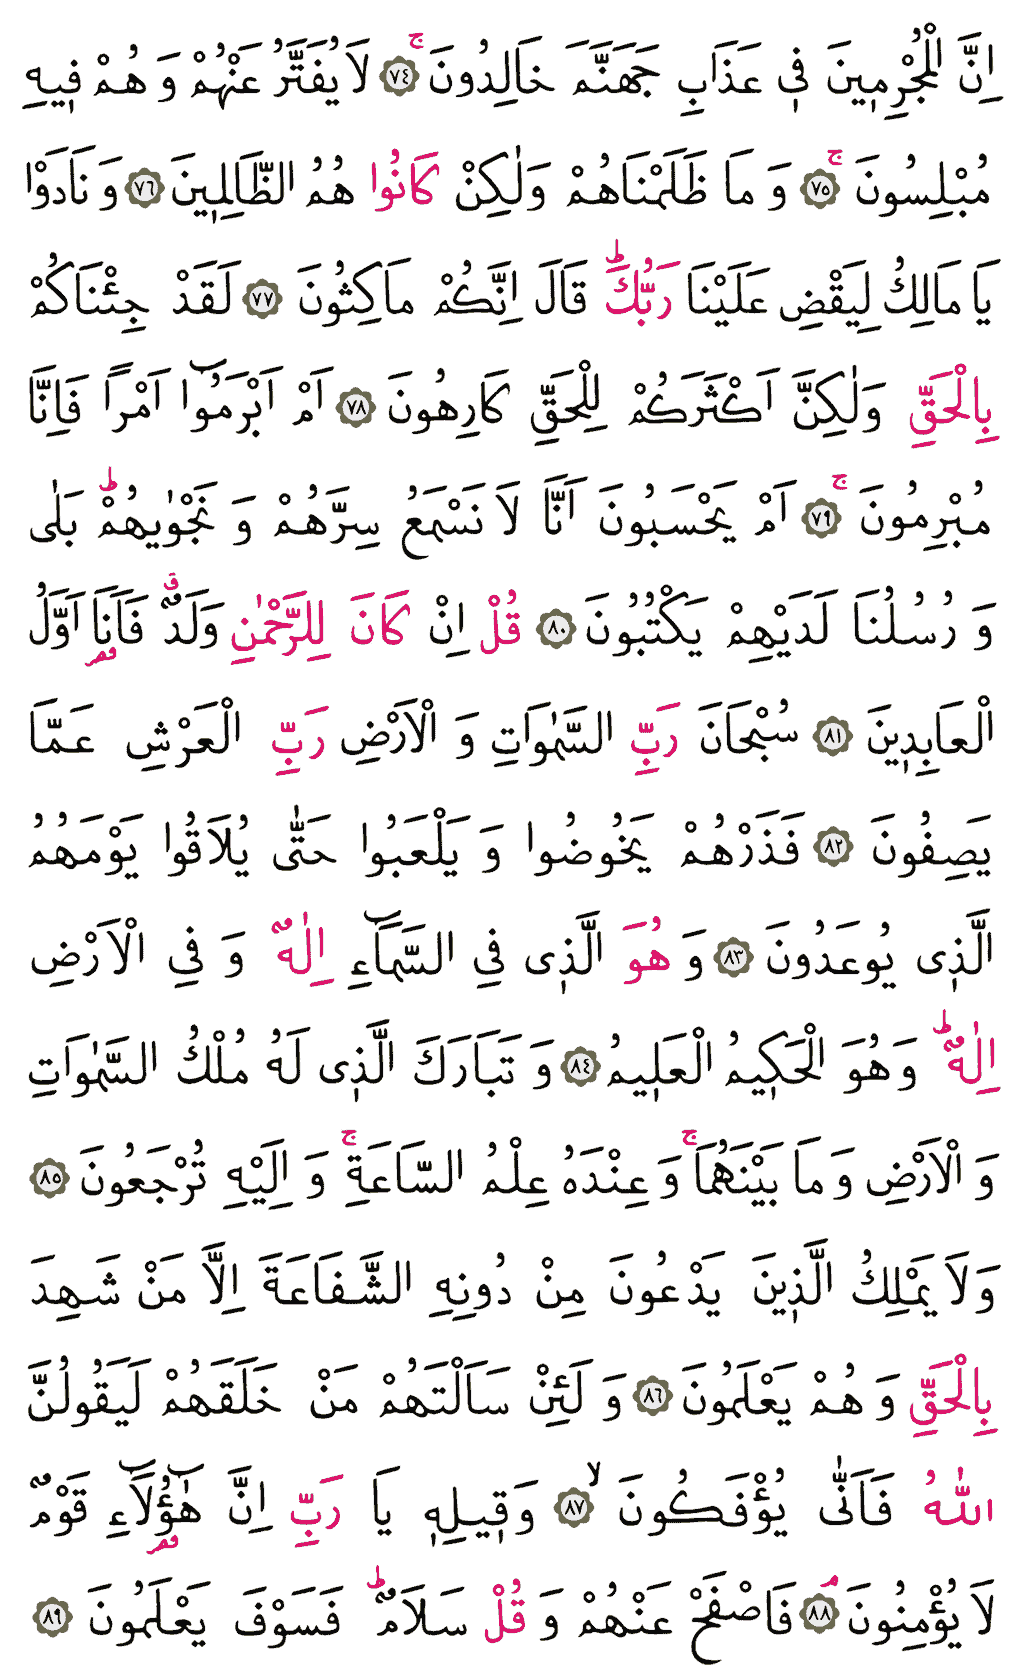 اِنَّ الْمُجْرِمٖينَ فٖي عَذَابِ جَهَنَّمَ خَالِدُونَۚ ﴿٧٤﴾ لَا يُفَتَّرُ عَنْهُمْ وَ هُمْ فٖيهِ
مُبْلِسُونَۚ ﴿٧٥﴾ وَ مَا ظَلَمْنَاهُمْ وَلٰكِنْ كَانُوا هُمُ الظَّالِمٖينَ ﴿٧٦﴾ وَ نَادَوْا
يَا مَالِكُ لِيَقْضِ عَلَيْنَا رَبُّكَؕ قَالَ اِنَّكُمْ مَاكِثُونَ ﴿٧٧﴾ لَقَدْ جِئْنَاكُمْ
بِالْحَقِّ وَلٰكِنَّ اَكْثَرَكُمْ لِلْحَقِّ كَارِهُونَ ﴿٧٨﴾ اَمْ اَبْرَمُٓوا اَمْراً فَاِنَّا
مُبْرِمُونَۚ ﴿٧٩﴾ اَمْ يَحْسَبُونَ اَنَّا لَا نَسْمَعُ سِرَّهُمْ وَ نَجْوٰيهُمْؕ بَلٰى
وَ رُسُلُنَا لَدَيْهِمْ يَكْتُبُونَ ﴿٨٠﴾ قُلْ اِنْ كَانَ لِلرَّحْمٰنِ وَلَدٌۗ فَاَنَا۬ اَوَّلُ
الْعَابِدٖينَ ﴿٨١﴾ سُبْحَانَ رَبِّ السَّمٰوَاتِ وَ الْاَرْضِ رَبِّ الْعَرْشِ عَمَّا
يَصِفُونَ ﴿٨٢﴾ فَذَرْهُمْ يَخُوضُوا وَ يَلْعَبُوا حَتّٰى يُلَاقُوا يَوْمَهُمُ
الَّذٖي يُوعَدُونَ ﴿٨٣﴾ وَ هُوَ الَّذٖي فِي السَّمَٓاءِ اِلٰهٌ وَ فِي الْاَرْضِ
اِلٰهٌؕ وَ هُوَ الْحَكٖيمُ الْعَلٖيمُ ﴿٨٤﴾ وَ تَبَارَكَ الَّذٖي لَهُ مُلْكُ السَّمٰوَاتِ
وَ الْاَرْضِ وَ مَا بَيْنَهُمَاۚ وَ عِنْدَهُ عِلْمُ السَّاعَةِۚ وَ اِلَيْهِ تُرْجَعُونَ ﴿٨٥﴾
وَلَا يَمْلِكُ الَّذٖينَ يَدْعُونَ مِنْ دُونِهِ الشَّفَاعَةَ اِلَّا مَنْ شَهِدَ
بِالْحَقِّ وَ هُمْ يَعْلَمُونَ ﴿٨٦﴾ وَ لَئِنْ سَاَلْتَهُمْ مَنْ خَلَقَهُمْ لَيَقُولُنَّ
اللّٰهُ فَاَنّٰى يُؤْفَكُونَۙ ﴿٨٧﴾ وَقٖيلِهٖ يَا رَبِّ اِنَّ هٰٓؤُ۬لَٓاءِ قَوْمٌ
لَا يُؤْمِنُونَۢ ﴿٨٨﴾ فَاصْفَحْ عَنْهُمْ وَ قُلْ سَلَامٌؕ فَسَوْفَ يَعْلَمُونَ ﴿٨٩﴾